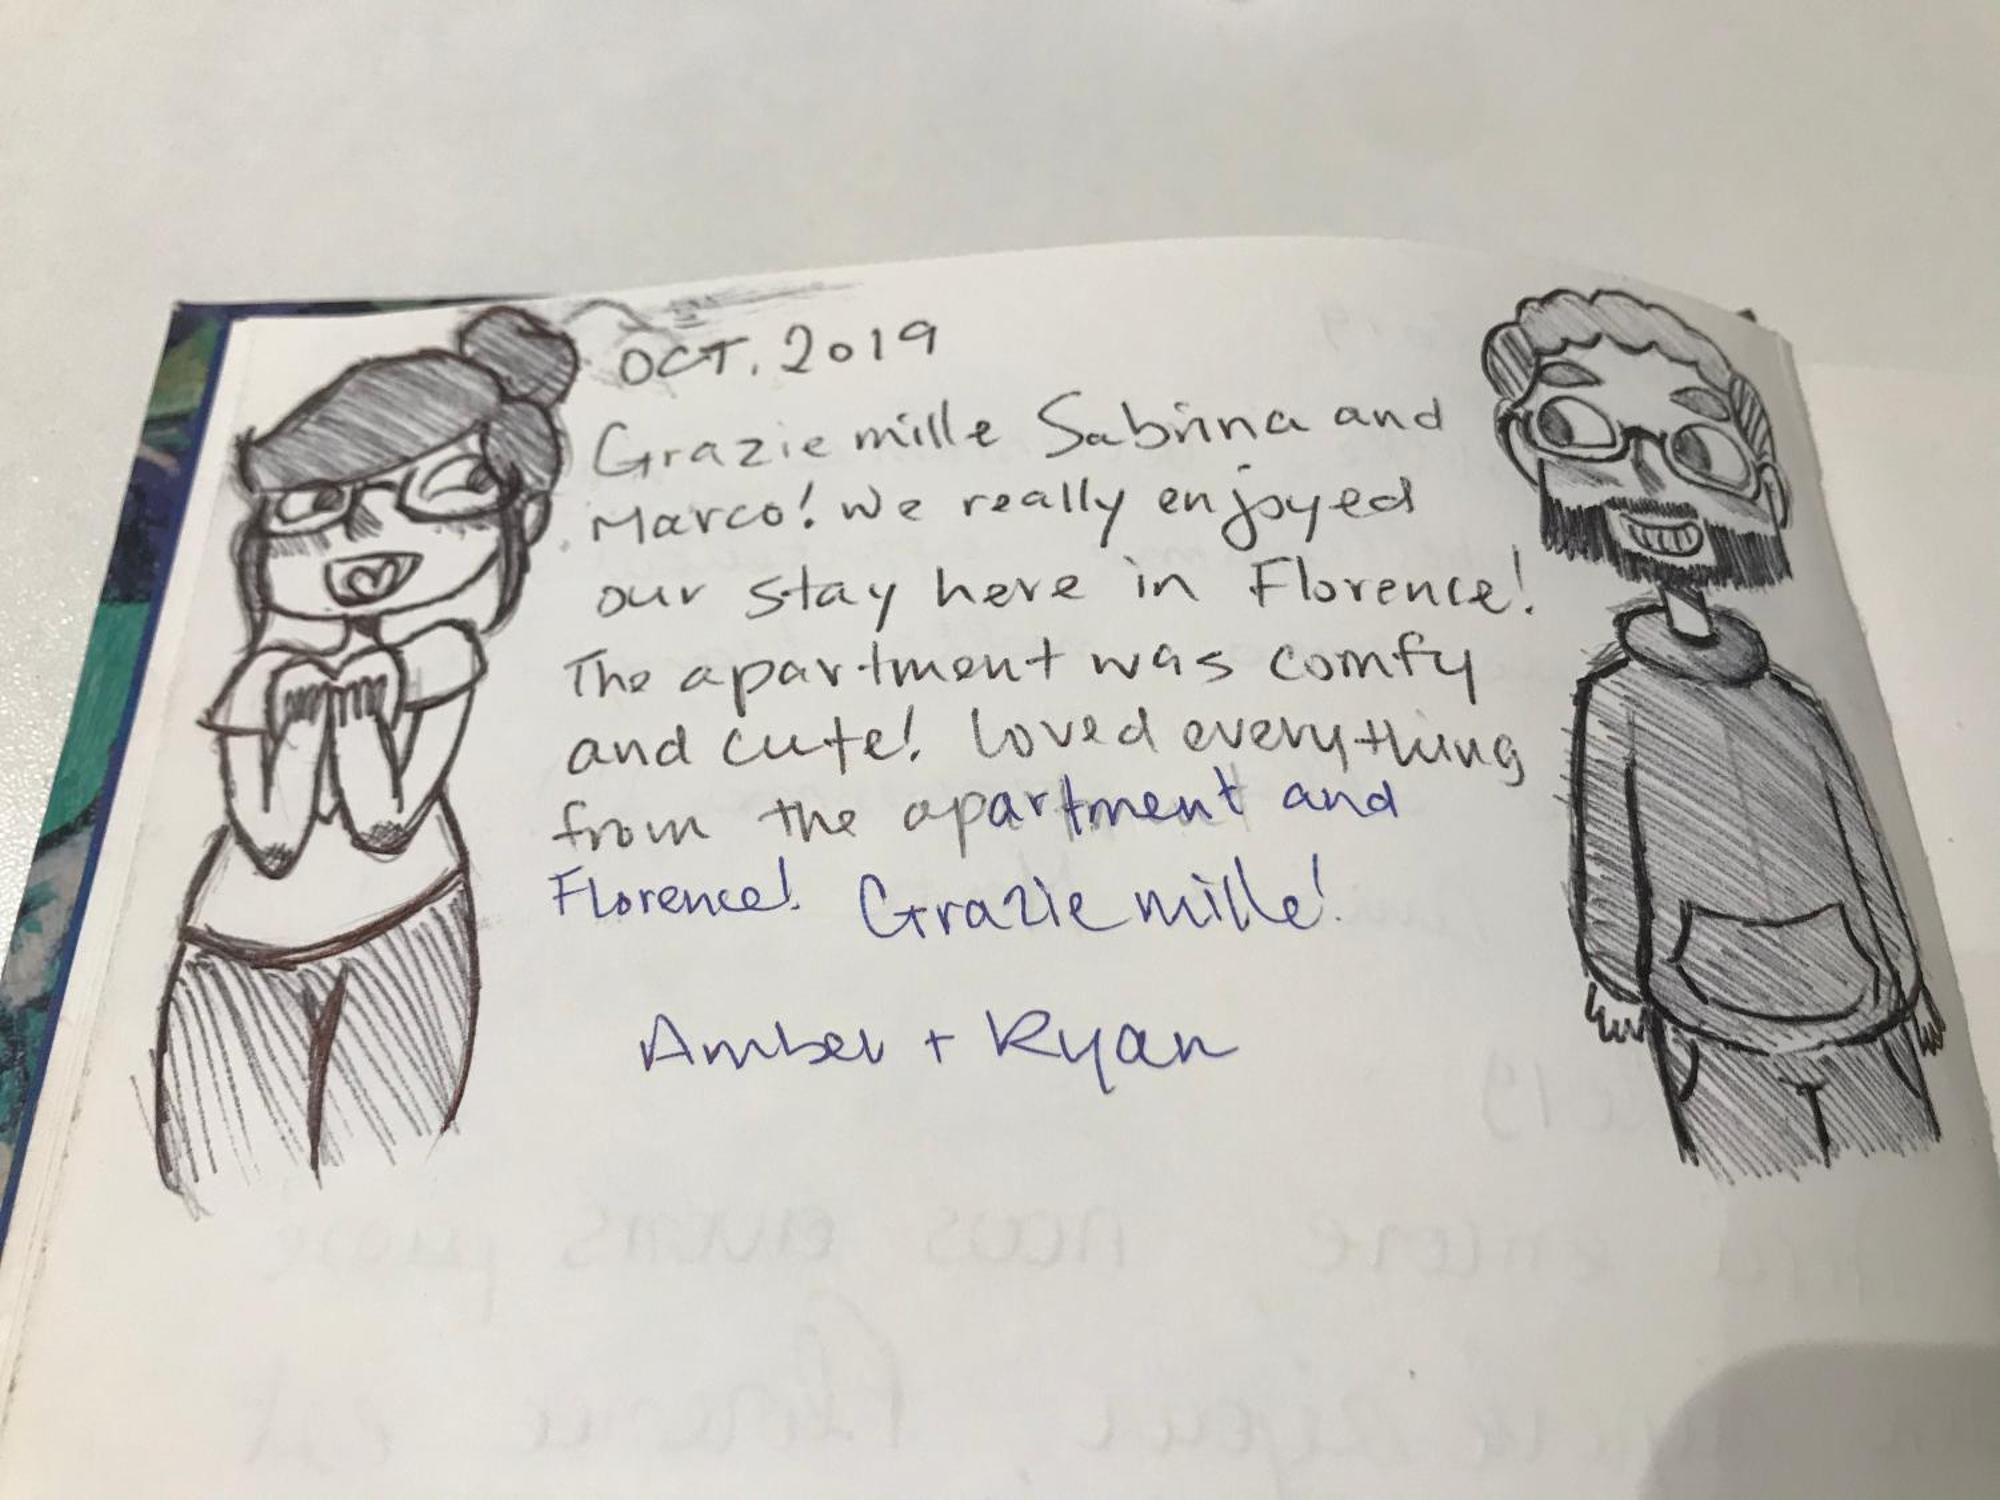 OCT. 2019
Grazie mille Sabrina and
Marco! We really enjoyed
our stay here in Florence!
The apartment was comfy
and cute! Loved everything
from the apartment and
Florence! Grazie mille!
Amber + Ryan